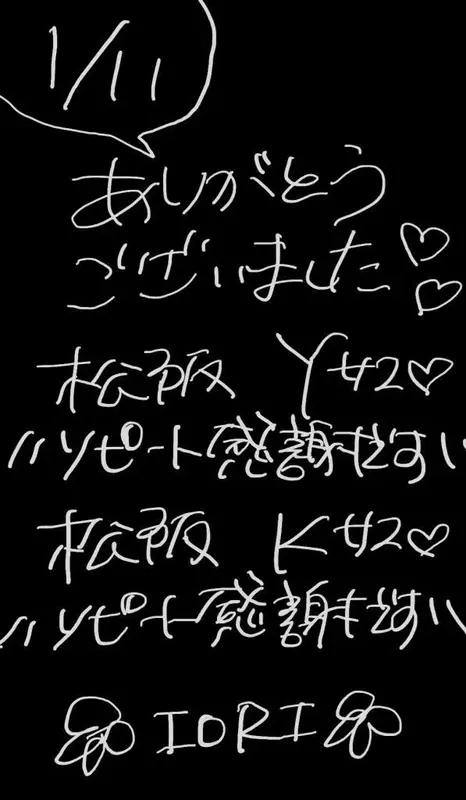 1/11
ありがとう
ございました♡♡
松阪 Yサマ♡
\\リピート感謝です//
松阪 Kサマ♡
\\リピート感謝です//
IORI